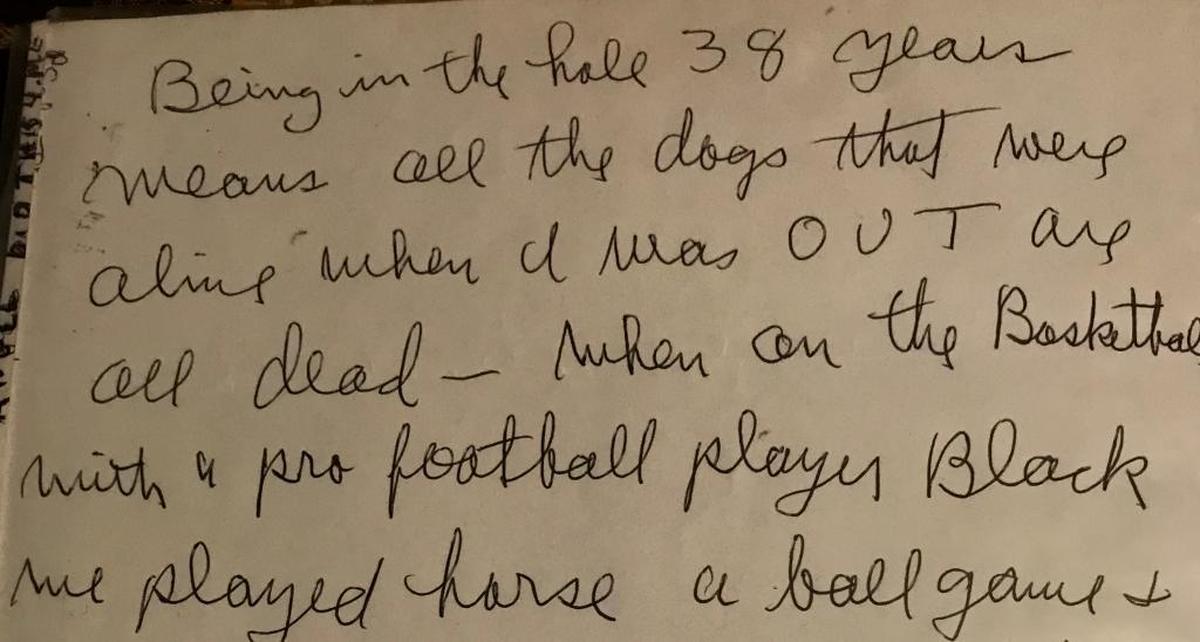 Being in the hole 38 years
means all the dogs that were
alive when I was OUT are
all dead — when on the Basketbal
with a pro football player Black
we played horse a ball game &